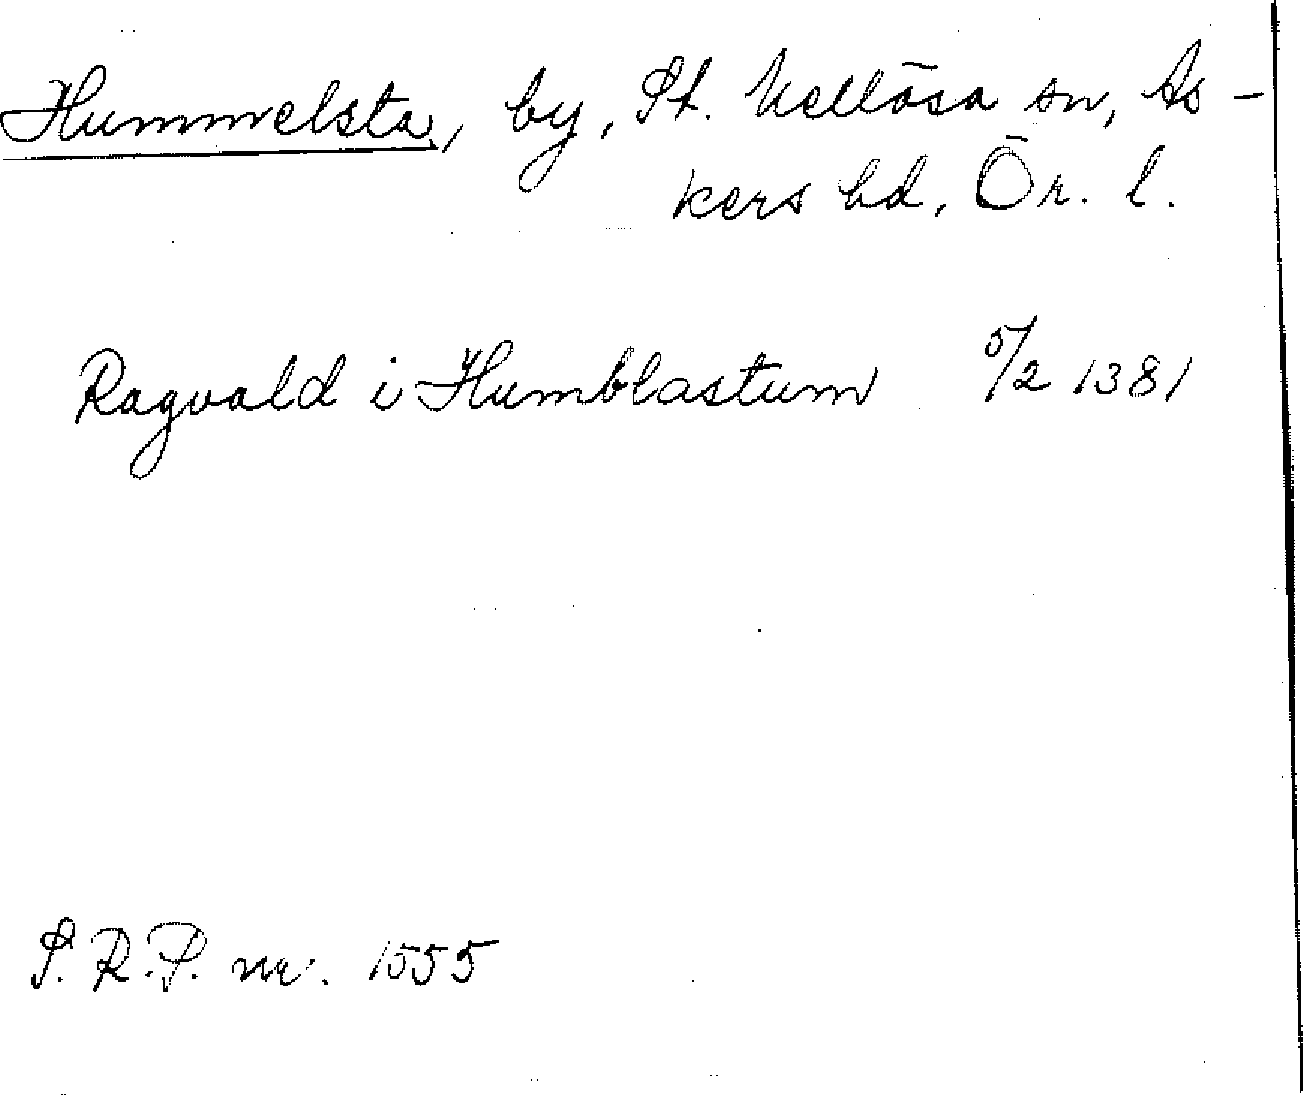 Hummelsta, by, St. Mellösa sn, As-
kers hd, Ör. l.
Ragvald i Humblastum 5/2 1381
S. R. P. nr. 1555